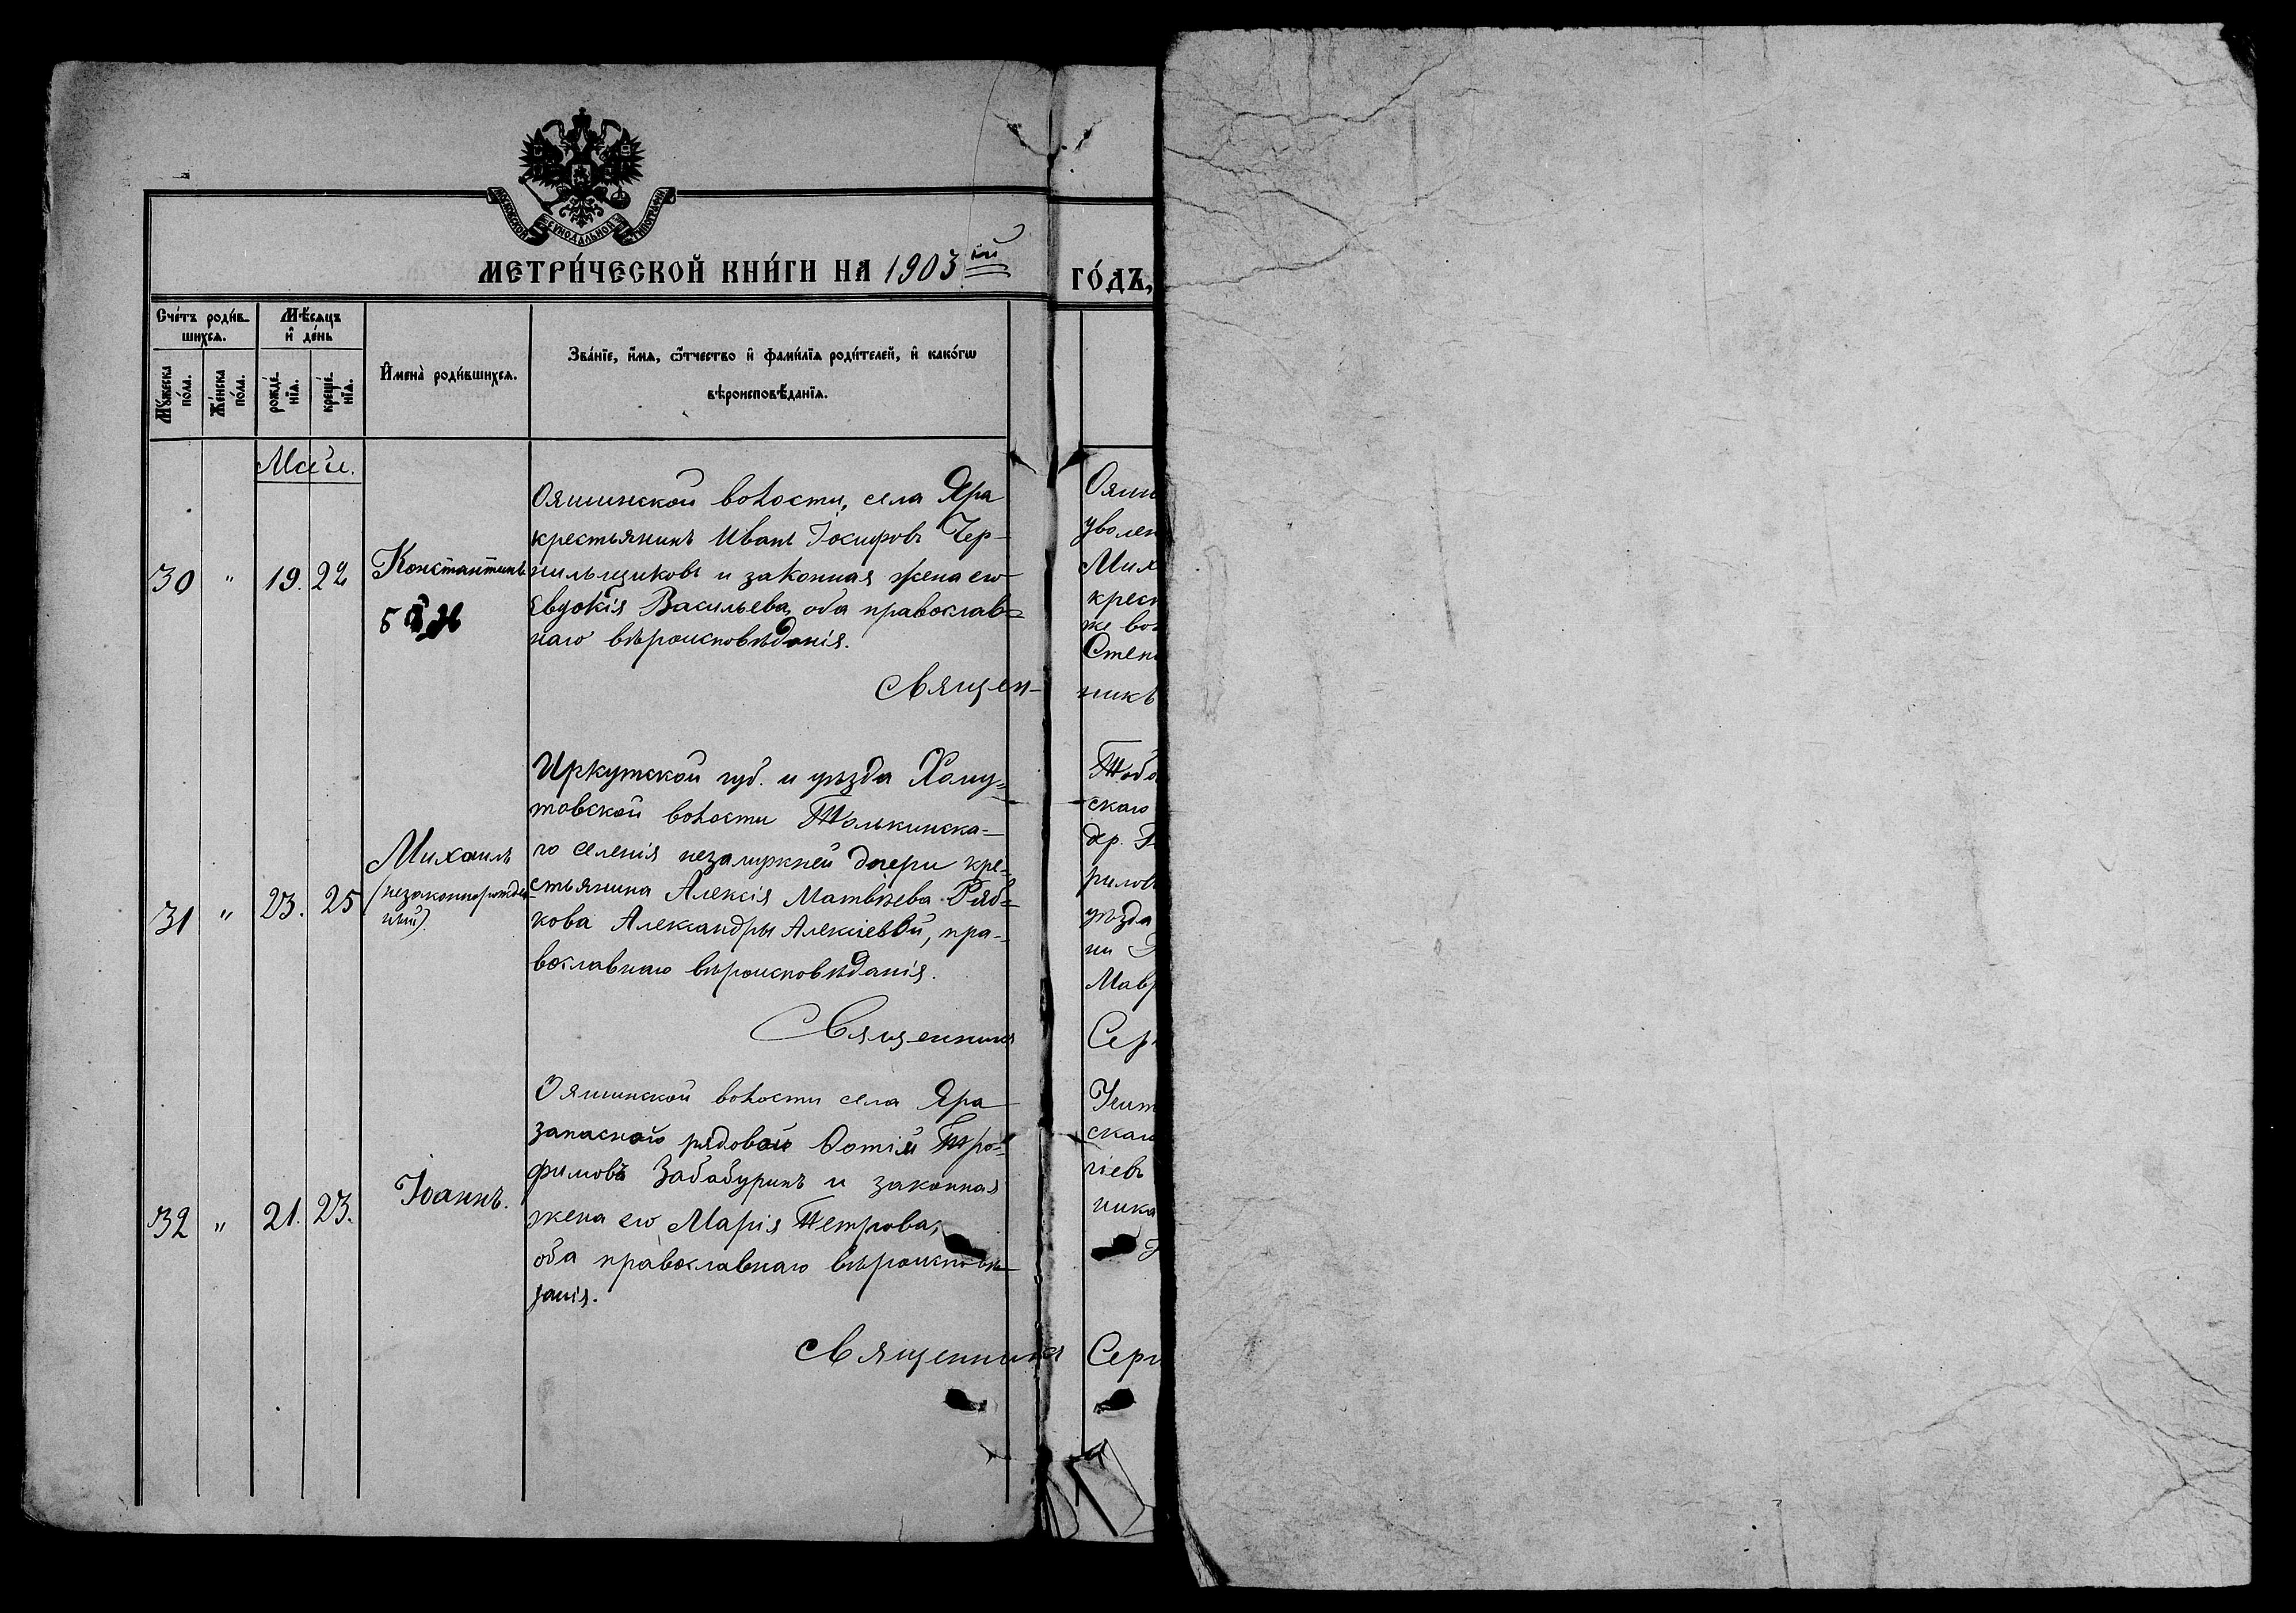 МОСКОВСКОЙ СѴНОДАЛЬНОЙ ТИПОГРАФІИ
МЕТРИ́ЧЕСКОЙ КНИ́ГИ НА 1903 ій
ГО́ДЪ,
Сче́тъ роди́в-
шихся.
Мѣ́сяцъ
и҆ де́нь
Мꙋ́жеска
по́ла.
Же́нска
по́ла.
рожде́-
нїѧ.
креще́-
нїѧ.
И҆мена̀ роди́вшихсѧ.
Зва́нїе, и҆́мѧ, ѻ҆́тчество и҆ фами́лїѧ роди́телей, и҆ како́гѡ
вѣроисповѣ́данїѧ.
Май.
30 " 19. 22
Константинъ
Ояшинской волости, села Яра
крестьянинъ Иванъ Іосифовъ Чер-
нильщиковъ и законная жена его
Евдокія Васильева, оба православ=
наго вѣроисповѣданія.
Священ-
31 " 23. 25
Михаилъ
(незаконнорожден-
ный).
Иркутской губ. и уѣзда Хому=
товской волости Толькинска-
го селенія незамужней дочери кре-
стьянина Алексія Матвѣева Ряб=
кова Александры Алексіевой, пра-
вославнаго вѣроисповѣданія.
Священникъ
32 " 21. 23.
Іоаннъ.
Ояшинской волости села Яра
запасной рядовой Фотій Тро-
фимовъ Забабуринъ и законная
жена его Марія Петрова,
оба православнаго вѣроисповѣ-
данія.
Священникъ
Ояши
уволен
Мих
крест
же во
Степ
никъ
Тобо
скаго
дер.
рилов
уѣзда
ни
Мавр
Серг
Учит
скаго
гіевъ
ника
Серг